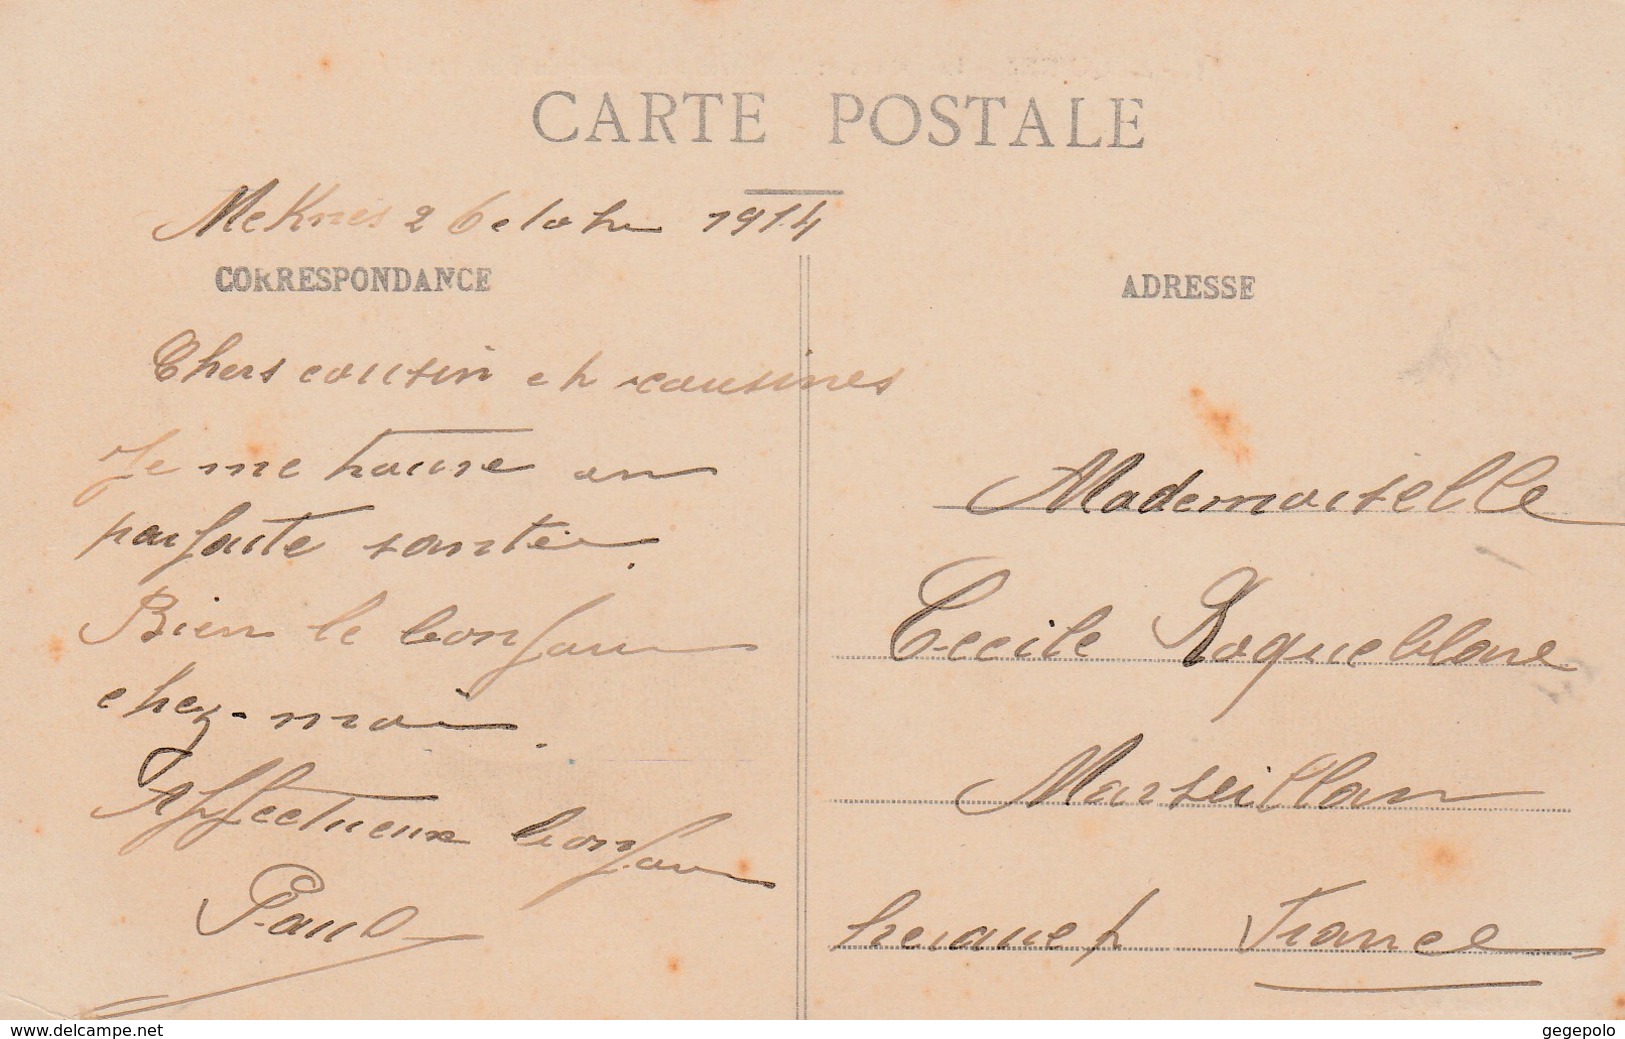 CARTE POSTALE
Meknes 2 6ctobre 1914
CORRESPONDANCE
Chers cousin et cousines
Je me trouve en
parfaite santée.
Bien le bonjour
chez-moi.
Affectueux bonjour
Paul
ADRESSE
Mademoiselle
Cecile Roqueblave
Marseillan
herault France
www.delcampe.net
gegepolo